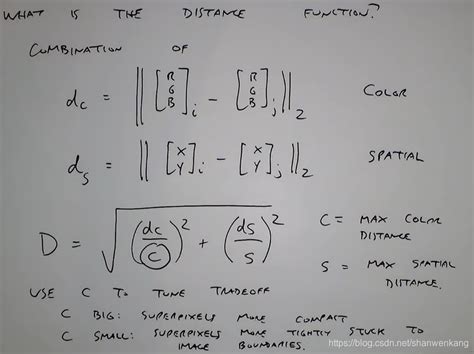 WHAT IS THE DISTANCE FUNCTION?
COMBINATION OF
dc = || [R G B]i - [R G B]j ||2 COLOR
ds = || [X Y]i - [X Y]j ||2 SPATIAL
D = √((dc/C)² + (ds/S)²) C = MAX COLOR DISTANCE
S = MAX SPATIAL DISTANCE.
USE C TO TUNE TRADEOFF
C BIG: SUPERPIXELS MORE COMPACT
C SMALL: SUPERPIXELS MORE TIGHTLY STUCK TO
IMAGE BOUNDARIES.
https://blog.csdn.net/shanwenkang